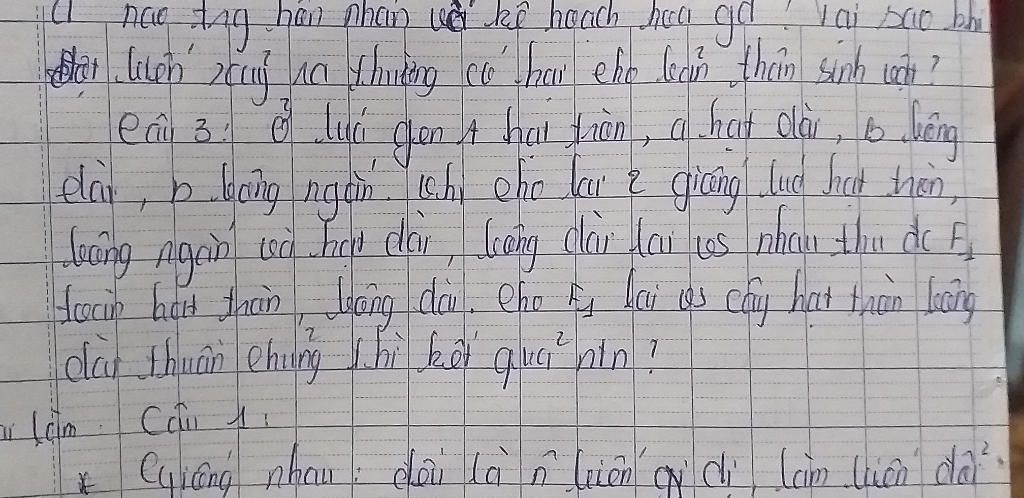 nào trg hôn nhân với kế hoạch hoá gđ? Tại sao khi
đột biến xảy ra thường có hại cho bản thân sinh vật?
Câu 3: Ở lúa gen A hạt tròn, a hạt dài, B bông
dài, b bông ngắn. Khi cho lai 2 giống lúa hạt tròn,
bông ngắn với hạt dài, bông dài lai vs nhau thu đc F1
toàn hạt tròn, bông dài. Cho F1 lai vs cây hạt tròn bông
dài thuần chủng thì kết quả ntn?
Làm Câu 1:
* Giống nhau: đều là n~ biến dị, làm biến đổi